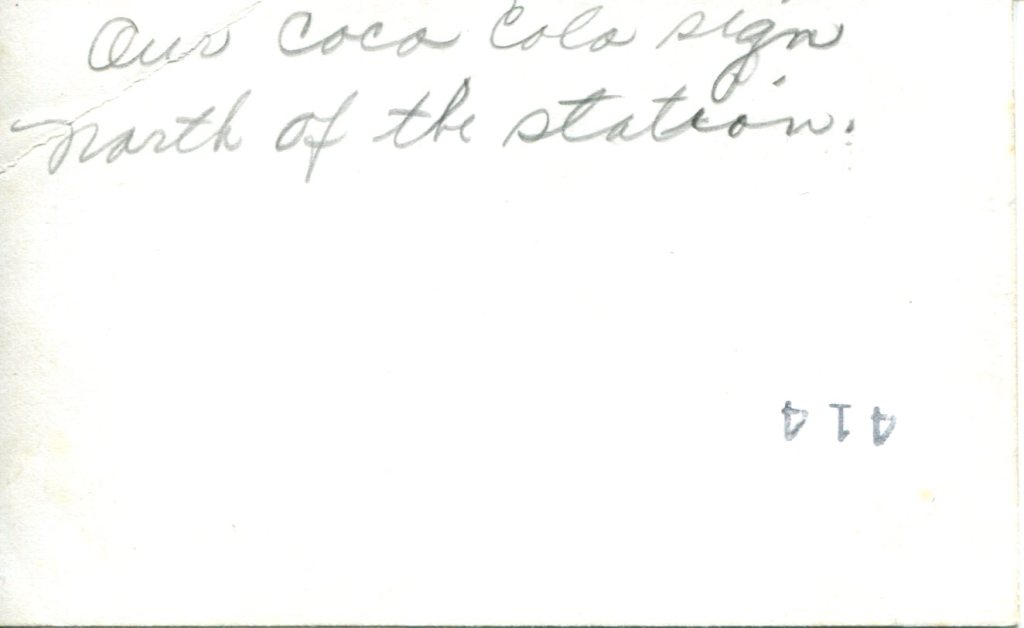 Our Coca Cola sign
north of the station.
414